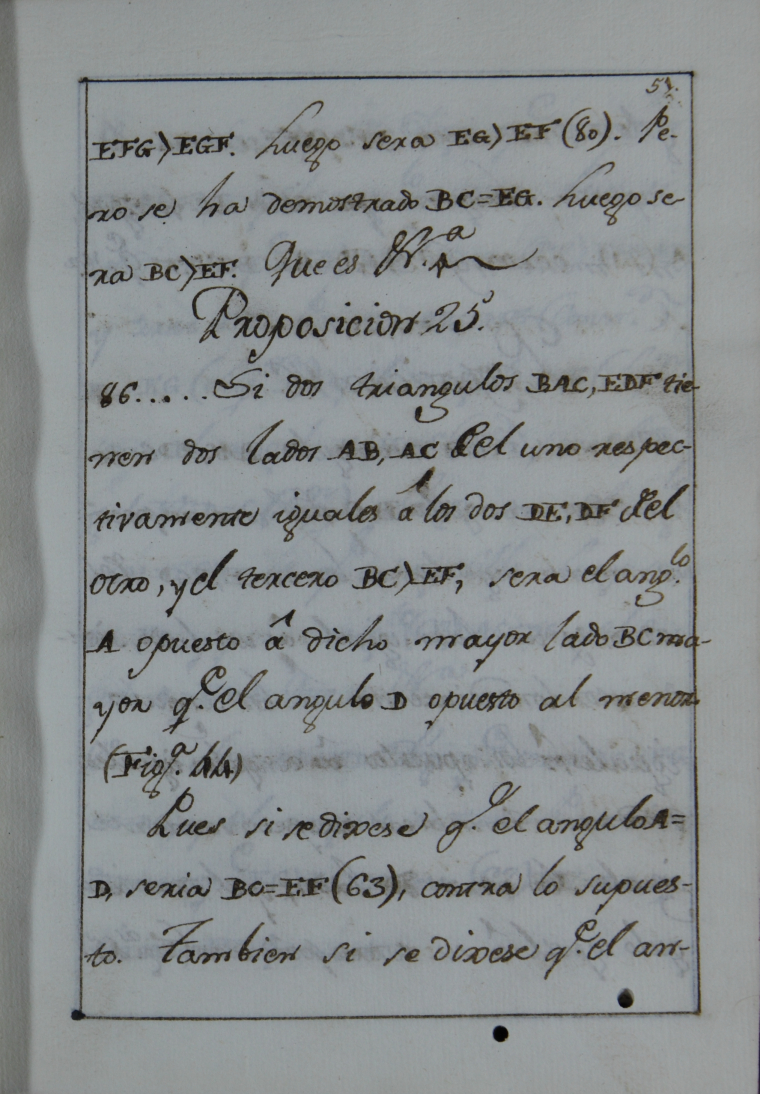 57.
EFG>EGF. Luego sera EG>EF (80). Pe-
ro se ha demostrado BC=EG. Luego se-
ra BC>EF. Que es
Proposicion 25.
86.....Si dos triangulos BAC, EDF tie-
nen dos lados AB, AC del uno respec-
tivamente iguales â los dos DE, DF del
otro, y el tercero BC>EF, sera el ang.lo
A opuesto â dicho mayor lado BC ma-
yor q.e el angulo D opuesto al menor.
(Fig.a 44)
Pues si se dixese q.e el angulo A=
D, seria BC=EF (63), contra lo supues-
to. Tambien si se dixese q.e el an-